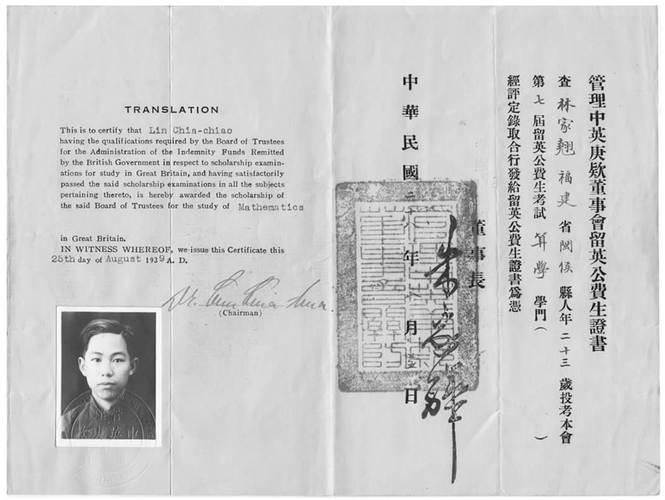 TRANSLATION
This is to certify that Lin Chia-chiao
having the qualifications required by the Board of Trustees
for the Administration of the Indemnity Funds Remitted
by the British Government in respect to scholarship examin-
ations for study in Great Britain, and having satisfactorily
passed the said scholarship examinations in all the subjects
pertaining thereto, is hereby awarded the scholarship of
the said Board of Trustees for the study of Mathematics
in Great Britain.
IN WITNESS WHEREOF, we issue this Certificate this
25th day of August 1939 A. D.
(Chairman)
管理中英庚款董事會留英公費生證書
查林家翹福建省閩侯縣人年二十三歲投考本會
第七屆留英公費生考試算學學門（ ）
經評定錄取合行發給留英公費生證書爲憑
董事長
朱家驊
中華民國二八年月日